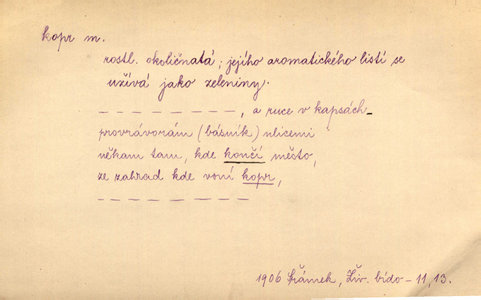 kopr m.
rostl. okoličnatá; jejího aromatického listí se
užívá jako zeleniny.
— — — — — — — — —, a ruce v kapsách
provrávorám (básník) ulicemi
někam tam, kde končí město,
ze zahrad kde voní kopr,
— — — — — — — — —
1906 Šrámek, Živ. bído – 11, 13.